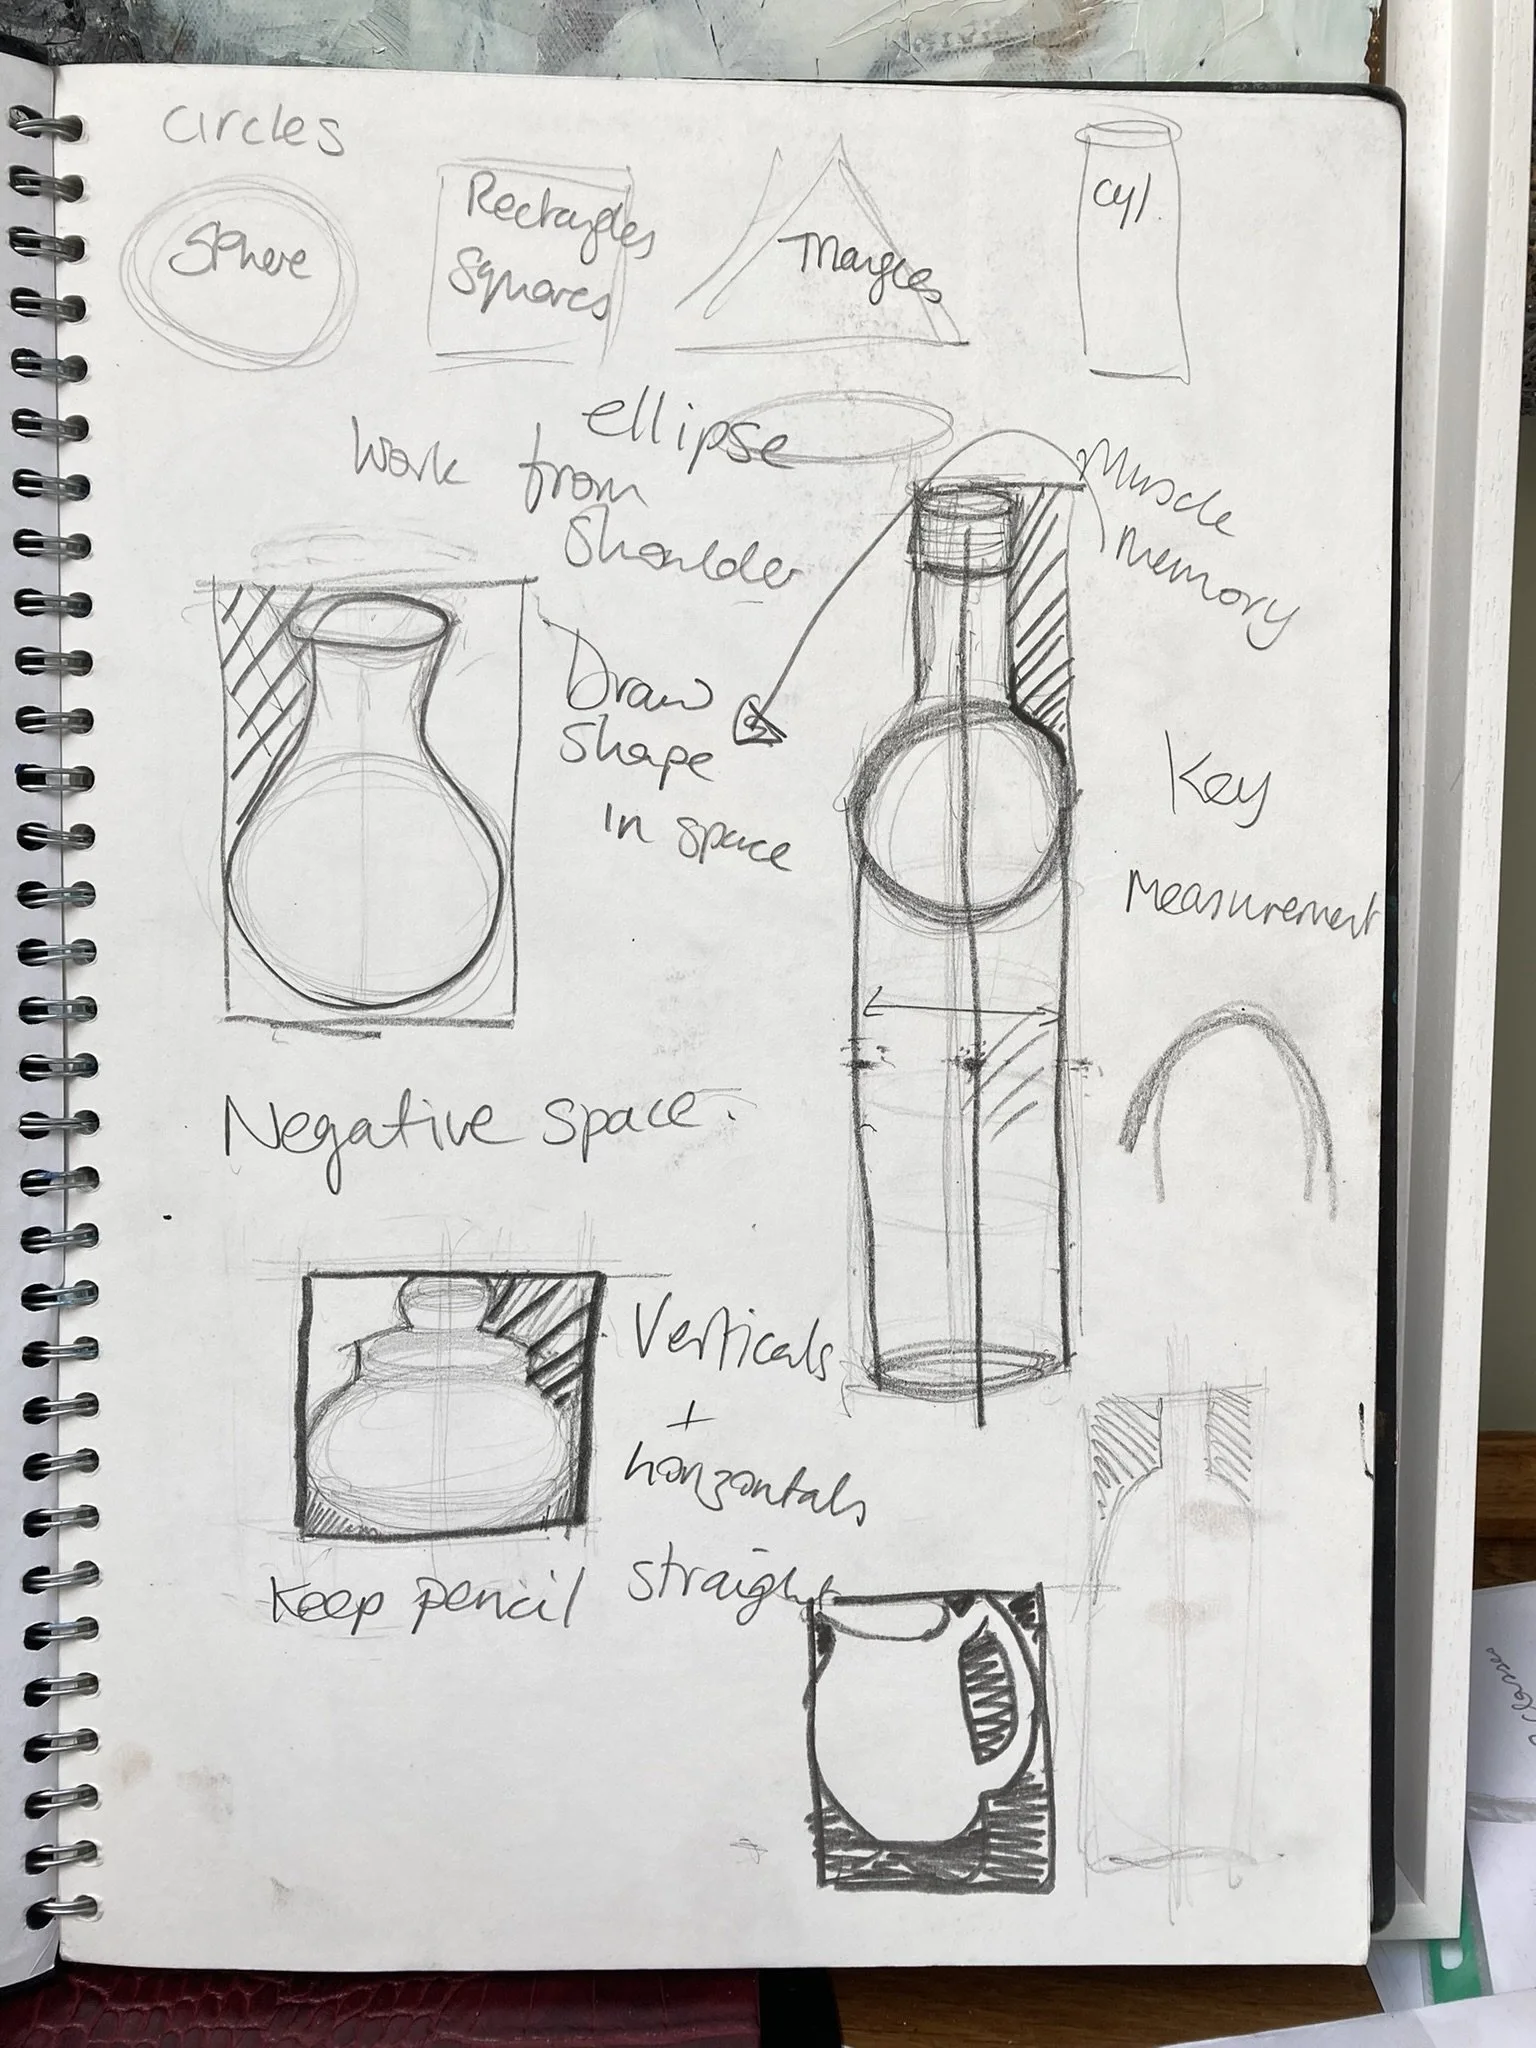 Circles
Sphere
Rectangles
Squares
Triangles
Cyl.
ellipse
Work from
Shoulder
Muscle
Memory
Draw
Shape
in space
Key
Measurement
Negative space.
Verticals
+
horizontals
Keep pencil straight